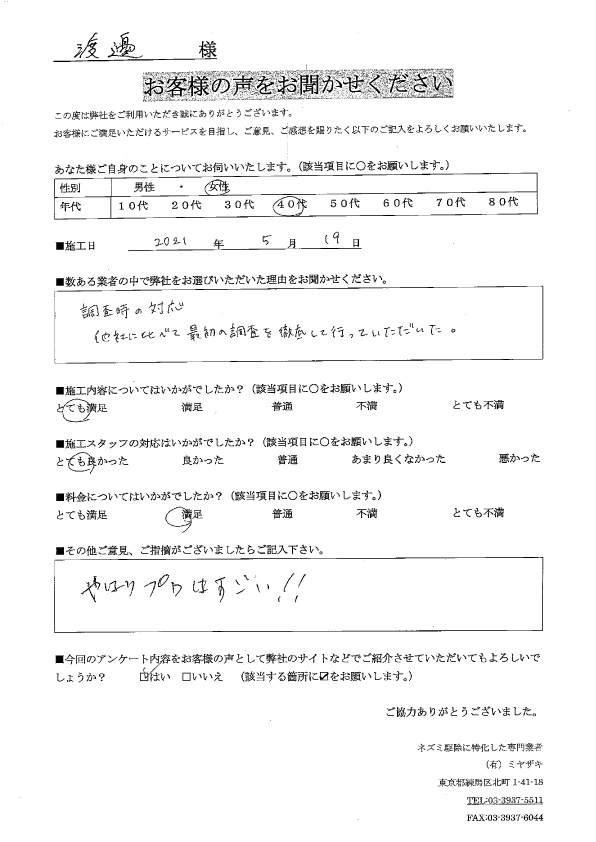 渡邉 様
お客様の声をお聞かせください
この度は弊社をご利用いただき誠にありがとうございます。
お客様にご満足いただけるサービスを目指し、ご意見、ご感想を賜りたく以下のご記入をよろしくお願いいたします。
あなた様ご自身のことについてお伺いいたします。（該当項目に〇をお願いします。）
性別 男性 ・ 女性
年代 10代 20代 30代 40代 50代 60代 70代 80代
■施工日 2021 年 5 月 19 日
■数ある業者の中で弊社をお選びいただいた理由をお聞かせください。
調査時の対応
他社に比べて最初の調査を徹底して行っていただいた。
■施工内容についてはいかがでしたか？（該当項目に〇をお願いします。）
とても満足 満足 普通 不満 とても不満
■施工スタッフの対応はいかがでしたか？（該当項目に〇をお願いします。）
とても良かった 良かった 普通 あまり良くなかった 悪かった
■料金についてはいかがでしたか？（該当項目に〇をお願いします。）
とても満足 満足 普通 不満 とても不満
■その他ご意見、ご指摘がございましたらご記入下さい。
やはりプロはすごい!!
■今回のアンケート内容をお客様の声として弊社のサイトなどでご紹介させていただいてもよろしいで
しょうか？ ☑はい □いいえ （該当する箇所に☑をお願いします。）
ご協力ありがとうございました。
ネズミ駆除に特化した専門業者
（有）ミヤザキ
東京都練馬区北町 1-41-18
TEL:03-3937-5511
FAX:03-3937-6044